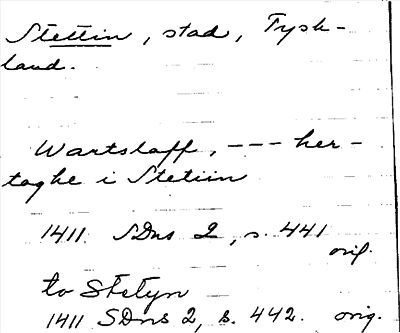 Stettin, stad, Tysk-
land.
Wartslaff, --- her-
toghe i Stetiin
1411 SDns 2, s. 441
orig.
to Stetyn
1411 SDns 2, s. 442. orig.